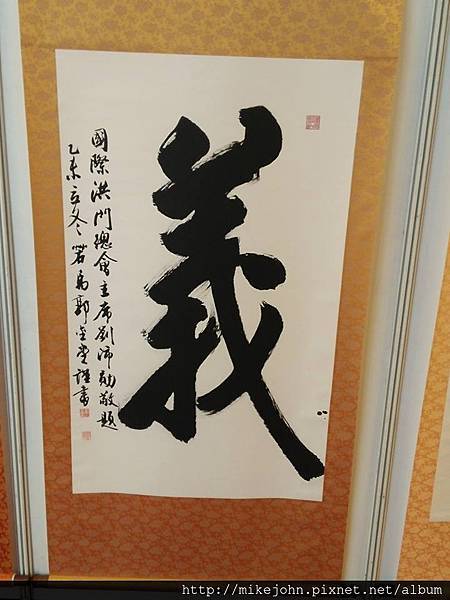 義
國際洪門總會主席劉沛勛敬題
乙未立冬 若禹郭金塗謹書
http://mikejohn.pixnet.net/album